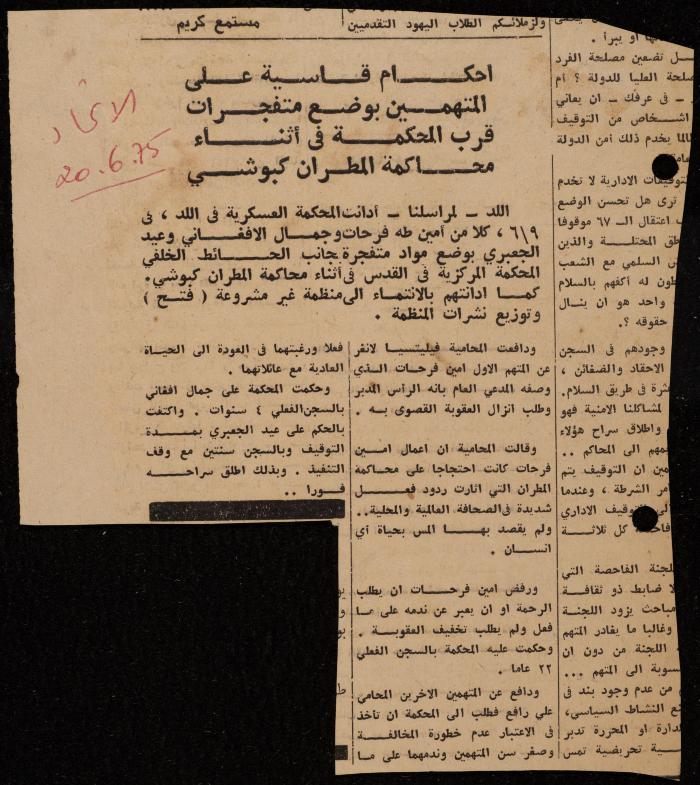 ولزملائكم الطلاب اليهود التقدميين
مستمع كريم
الاتحاد
20.6.75
احكــــام قــاسية عــلى
المتهمــين بوضع متفجــرات
قرب المحكمــة فى أثنــاء
محــاكمة المطــران كبوشــي
اللد ــ لمراسلنا ــ أدانت المحكمة العسكرية فى اللد ، فى
٦/٩ ، كلا من أمين طه فرحات وجمال الافغــاني وعيد
الجعبري بوضع مواد متفجرة بجانب الحــائط الخلفي
المحكمة المركزية فى القدس فى أثناء محاكمة المطران كبوشي.
كمــا ادانتهم بالانتمــاء الى منظمة غير مشروعة ( فتــح )
وتوزيع نشرات المنظمة .
ودافعت المحامية فيليتسيا لانغر
عن المتهم الاول امين فرحات الــذي
وصفه المدعي العام بانه الرأس المدبر
وطلب انزال العقوبة القصوى بــه .
وقالت المحامية ان اعمال امــين
فرحات كانت احتجاجا على محاكمــة
المطران التي اثارت ردود فعـــل
شديدة فى الصحافة العالمية والمحلية..
ولم يقصد بهـــا المس بحياة أي
انســان .
ورفض امين فرحــات ان يطلب
الرحمة او ان يعبر عن ندمه على مــا
فعل ولم يطلب تخفيف العقوبــة .
وحكمت عليه المحكمة بالسجن الفعلي
٢٢ عاما .
ودافع عن المتهمين الاخرين المحامي
علي رافع فطلب الى المحكمة ان تأخذ
فى الاعتبار عدم خطورة المخالفــة
وصغر سن المتهمين وندمهما على مــا
فعلا ورغبتهما فى العودة الى الحيــاة
العادية مع عائلاتهما .
وحكمت المحكمة على جمال افغاني
بالسجن الفعلي ٤ سنوات . واكتفت
بالحكم على عيد الجعبري بمـــدة
التوقيف وبالسجن سنتين مع وقف
التنفيذ . وبذلك اطلق سراحـــه
فــورا ..
او يبرأ .
ــل تضعين مصلحة الفرد
صلحة العليا للدولة ؟ أم
ــ فى عرفك ــ ان يعاني
اشخــاص من التوقيف
طالما يخدم ذلك أمن الدولة
لتوقيفات الادارية لا تخدم
ترى هل تحسن الوضع
اعتقال الــ ٦٧ موقوفا
طق المحتلــة والذين
السلمي مع الشعب
طون له أكفهم بالسلام
واحد هو ان ينــال
حقوقه ؟.
وجودهم فى السجن
الاحقاد والضغائن ،
ثرة فى طريق السلام.
لمشاكلنا الامنية فهو
واطلاق سراح هؤلاء
مهم الى المحاكم ..
مين ان التوقيف يتم
مر الشرطة ، وعندما
توقيف الاداري
كل ثلاثــة
للجنة الفاحصة التي
لا ضابط ذو ثقافــة
مباحث يزود اللجنة
وغالبا ما يغادر المتهم
اللجنة من دون ان
سوبة الى المتهم ...
من عدم وجود بند فى
ـع النشاط السياسي،
لدارة او المحررة تدبر
ـية تحريضية تمس